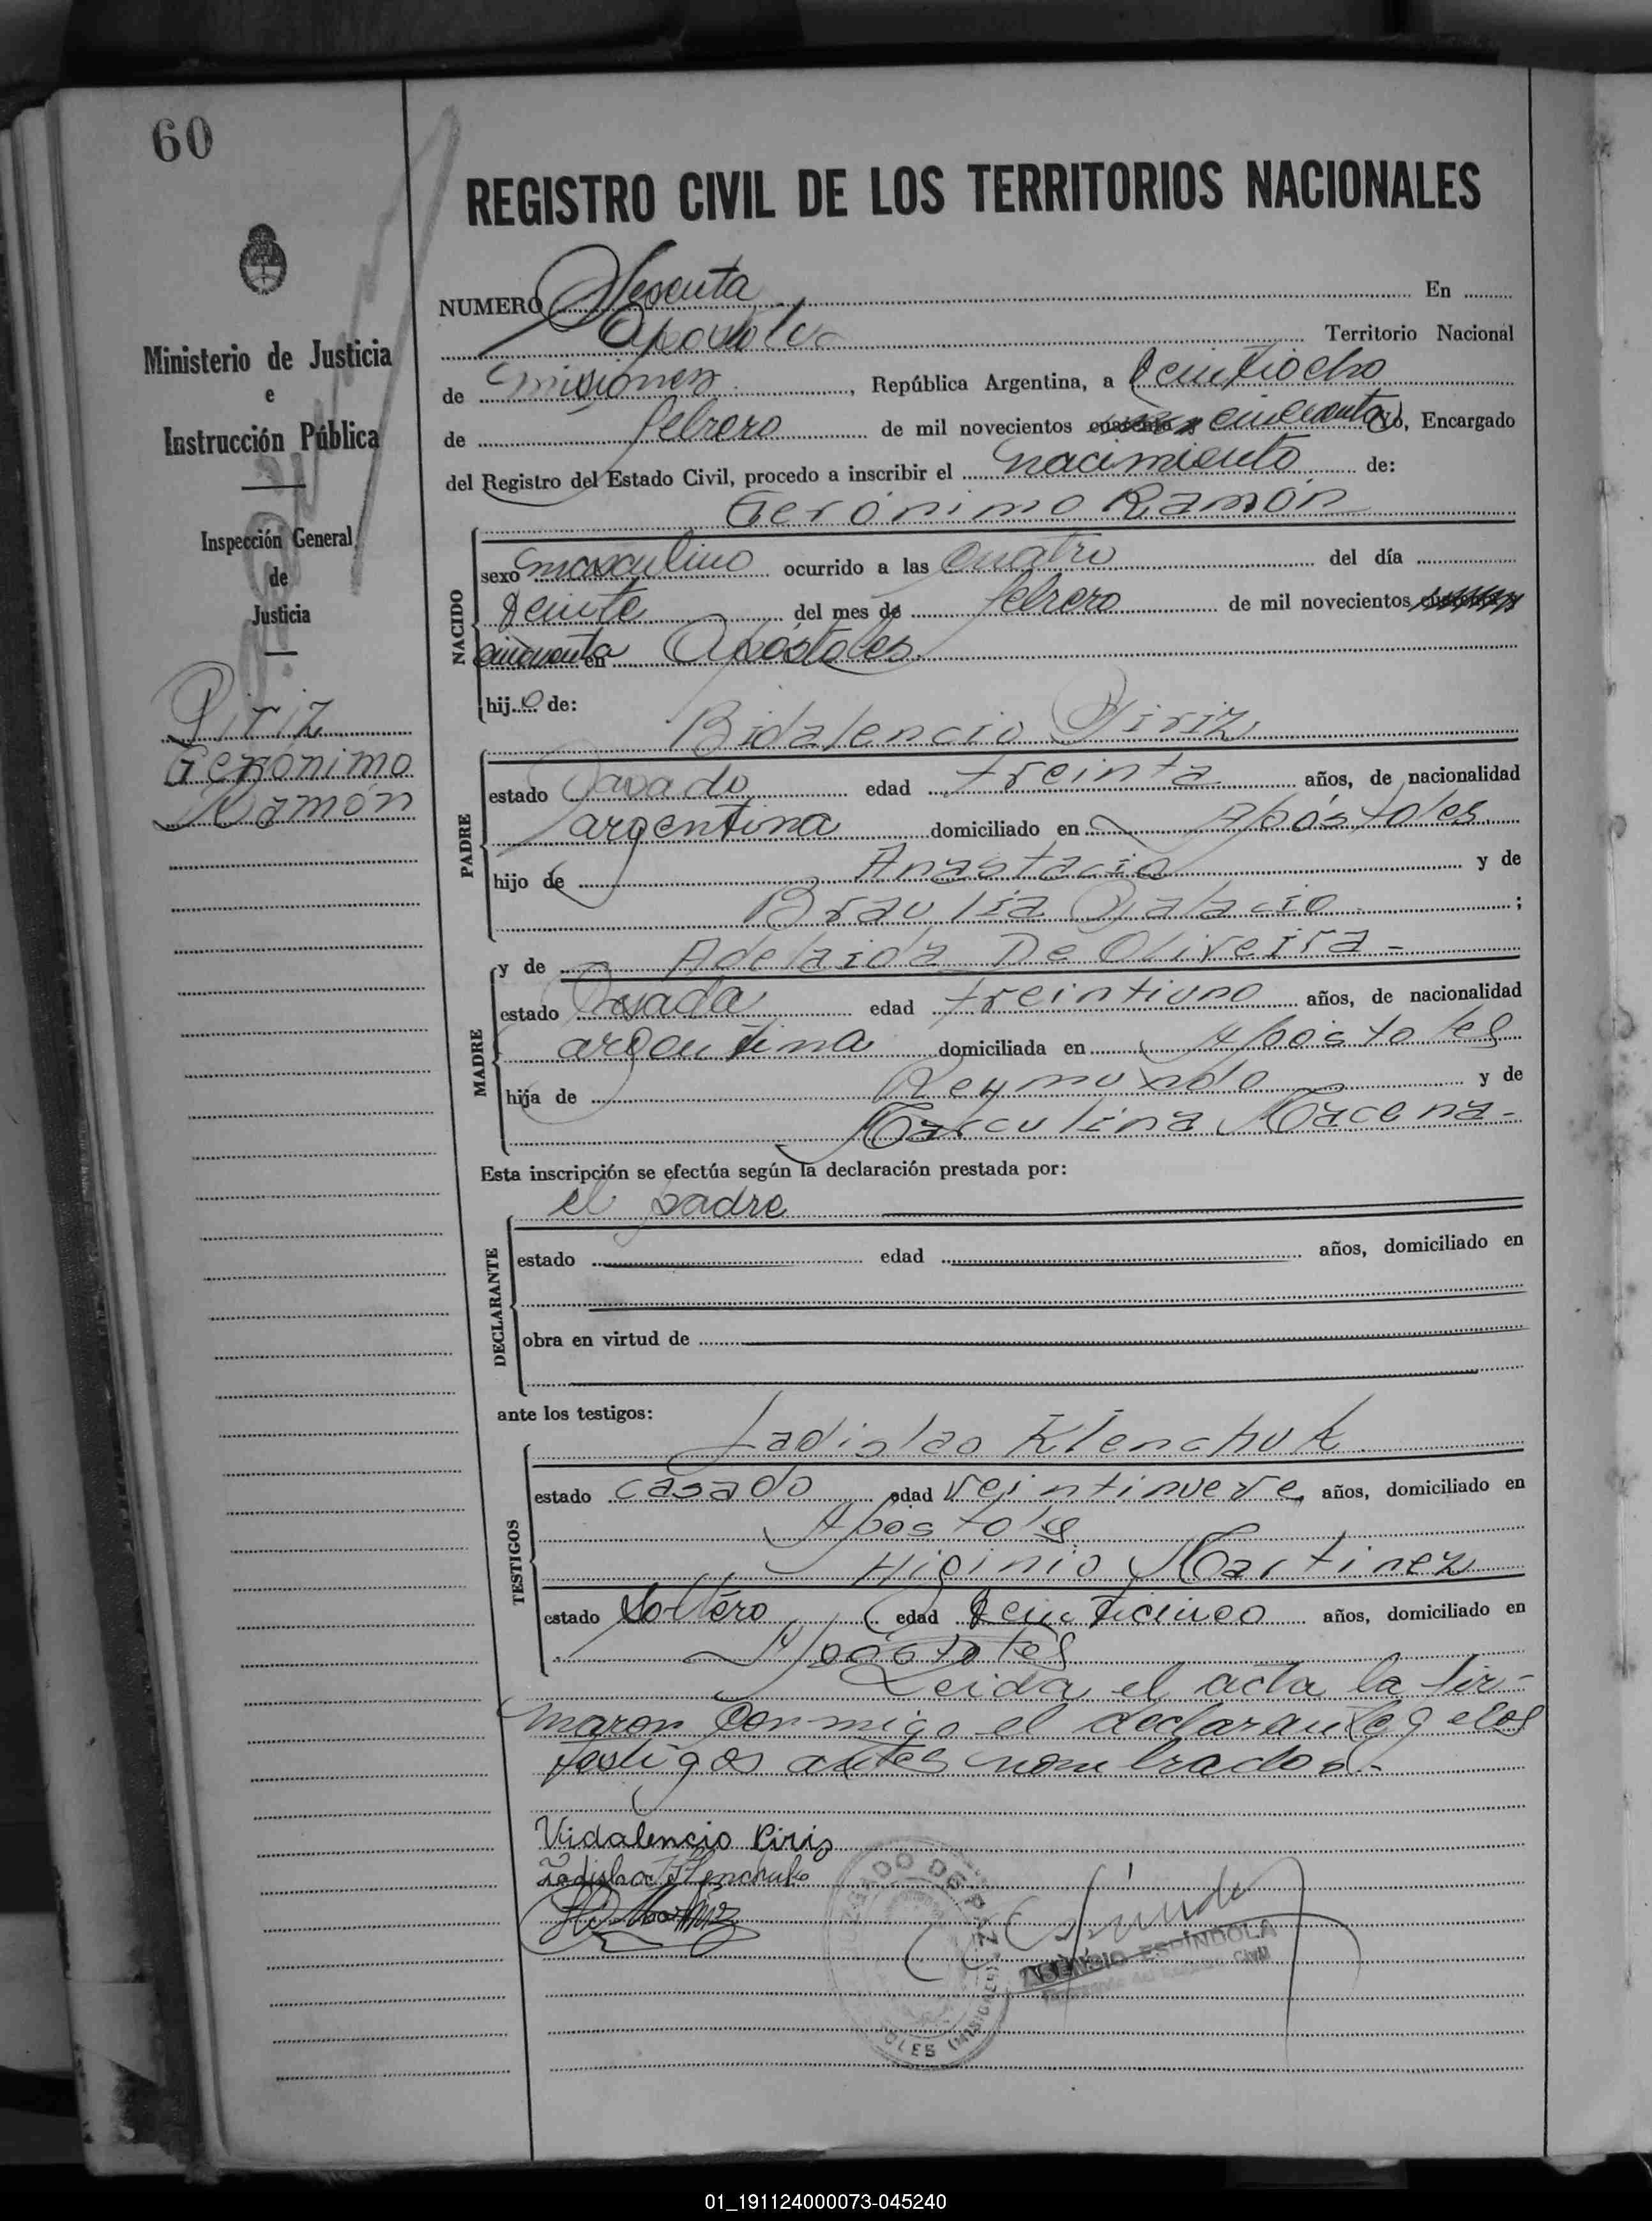 60
REGISTRO CIVIL DE LOS TERRITORIOS NACIONALES
Ministerio de Justicia
e
Instrucción Pública
Inspección General
de
Justicia
Piriz
Gerónimo
Ramón
NUMERO Sesenta En
Apóstoles Territorio Nacional
de Misiones, República Argentina, a veintiocho
de febrero de mil novecientos cincuenta yo, Encargado
del Registro del Estado Civil, procedo a inscribir el nacimiento de:
Gerónimo Ramón
NACIDO
sexo masculino ocurrido a las cuatro del día
veinte del mes de febrero de mil novecientos
cincuenta en Apóstoles
hijo de:
Bidalencio Piriz
PADRE
estado casado edad treinta años, de nacionalidad
argentina domiciliado en Apóstoles
hijo de Anastacio y de
Braulia Palacio ;
y de Adelaida De Oliveira -
MADRE
estado casada edad treintiuno años, de nacionalidad
argentina domiciliada en Apóstoles
hija de Reymundo y de
Marculina Macena -
Esta inscripción se efectúa según la declaración prestada por:
el padre
DECLARANTE
estado edad años, domiciliado en
obra en virtud de
ante los testigos:
Ladislao Klenchuk
TESTIGOS
estado casado edad veintinueve años, domiciliado en
Apóstoles
Higinio Martinez
estado soltero edad veinticinco años, domiciliado en
Apóstoles
Leida el acta la fir-
maron conmigo el declarante y los
testigos antes nombrados.-
Vidalencio Piris
Ladislao Klenchuk
JUZGADO DE PAZ
ASENCIO ESPINDOLA
Encargado del Registro Civil
OLES (MISIONES)
01_191124000073-045240